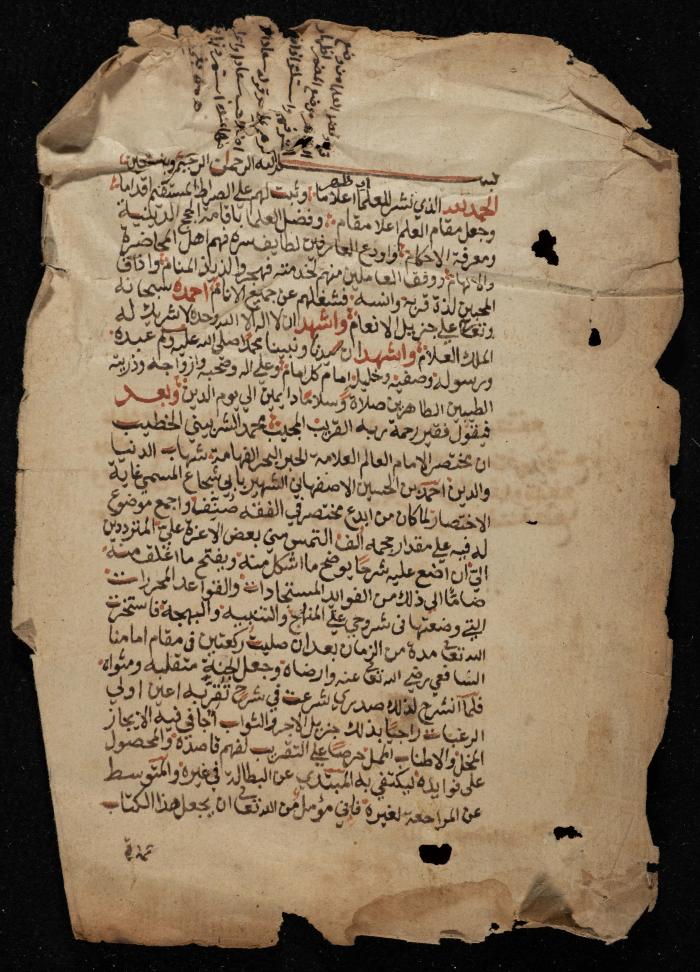 بسم الله الرحمن الرحيم وبه نستعين
الحمد لله الذي نشر للعلما اعلاما وثبت لهم على الصراط المستقيم اقداما
وجعل مقام العلم اعلا مقام وفضل العلما باقامة الحجج الدينية
ومعرفة الاحكام واودع العارفين لطايف سره فهم اهل المحاضرة
والالهام ووفق العاملين لخدمته فهجروا لذيذ المنام واذاق
المحبين لذة قربه وانسه فشغلهم عن جميع الانام احمده سبحانه
وتعالى على جزيل الانعام واشهد ان لا اله الا الله وحده لا شريك له
الملك العلام واشهد ان سيدنا ونبينا محمد صلى الله عليه وسلم عبده
ورسوله وصفيه وخليله امام كل امام وعلى اله وصحبه وازواجه وذريته
الطيبين الطاهرين صلاة وسلاما دايمين الى يوم الدين وبعد
فيقول فقير رحمة ربه القريب المجيب محمد الشربيني الخطيب
ان مختصر الامام العالم العلامة الحبر البحر الفهامة شهاب الدنيا
والدين احمد بن الحسين الاصفهاني الشهير بابي شجاع المسمى غاية
الاختصار لما كان من ابدع مختصر في الفقه صنف واجمع موضوع
له فيه على مقدار حجمه الف التمس مني بعض الاعزة على المترددين
الي ان اضع عليه شرحا يوضح ما اشكل منه ويفتح ما اغلق منه
ضاما الى ذلك من الفوايد المستجادات والقواعد المحررات
التي وضعتها في شروحي على المنهاج والتنبيه والبهجة فاستخرت
الله تعالى مدة من الزمان بعد ان صليت ركعتين في مقام امامنا
الشافعي رضي الله تعالى عنه وارضاه وجعل الجنة منقلبه ومثواه
فلما انشرح لذلك صدري شرعت في شرح تقر به اعين اولي
الرغبات راجيا بذلك جزيل الاجر والثواب اجافي فيه الايجاز
المخل والاطناب الممل حرصا على التقريب لفهم قاصده والحصول
على فوايده ليكتفي به المبتدي عن المطالعة في غيره والمتوسط
عن المراجعة لغيره فاني مؤمل من الله تعالى ان يجعل هذا الكتاب